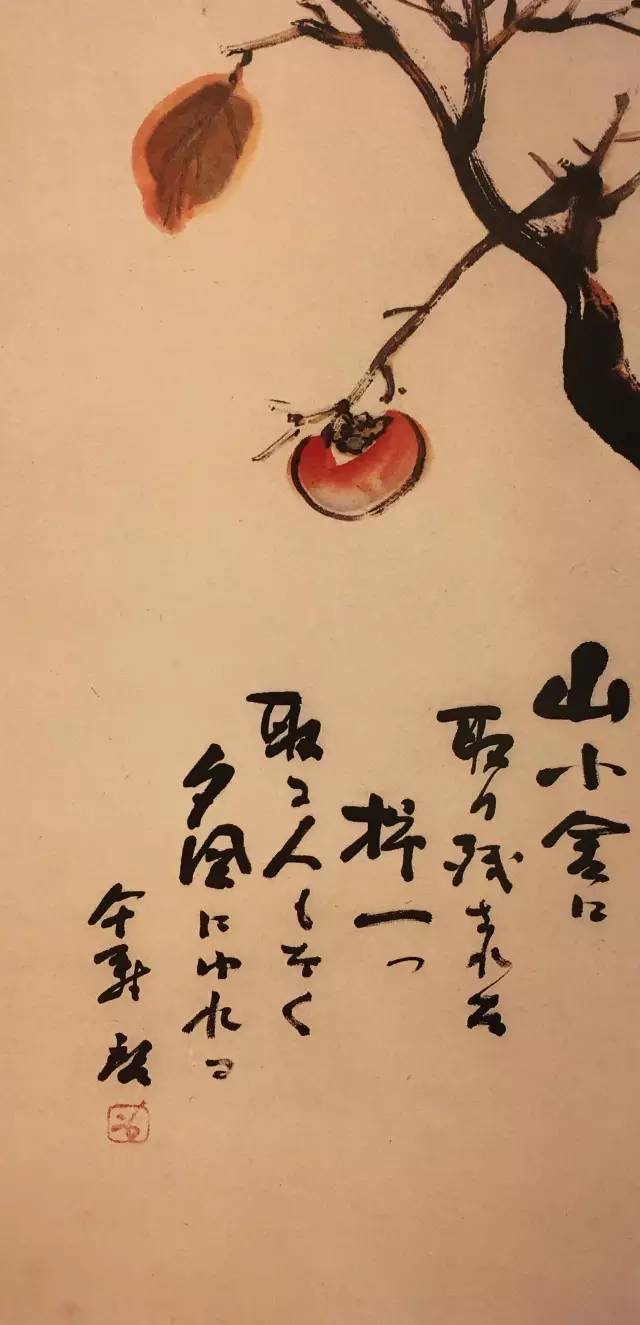 山小舎に
取り残された
柿一つ
取る人もなく
夕風にゆれる